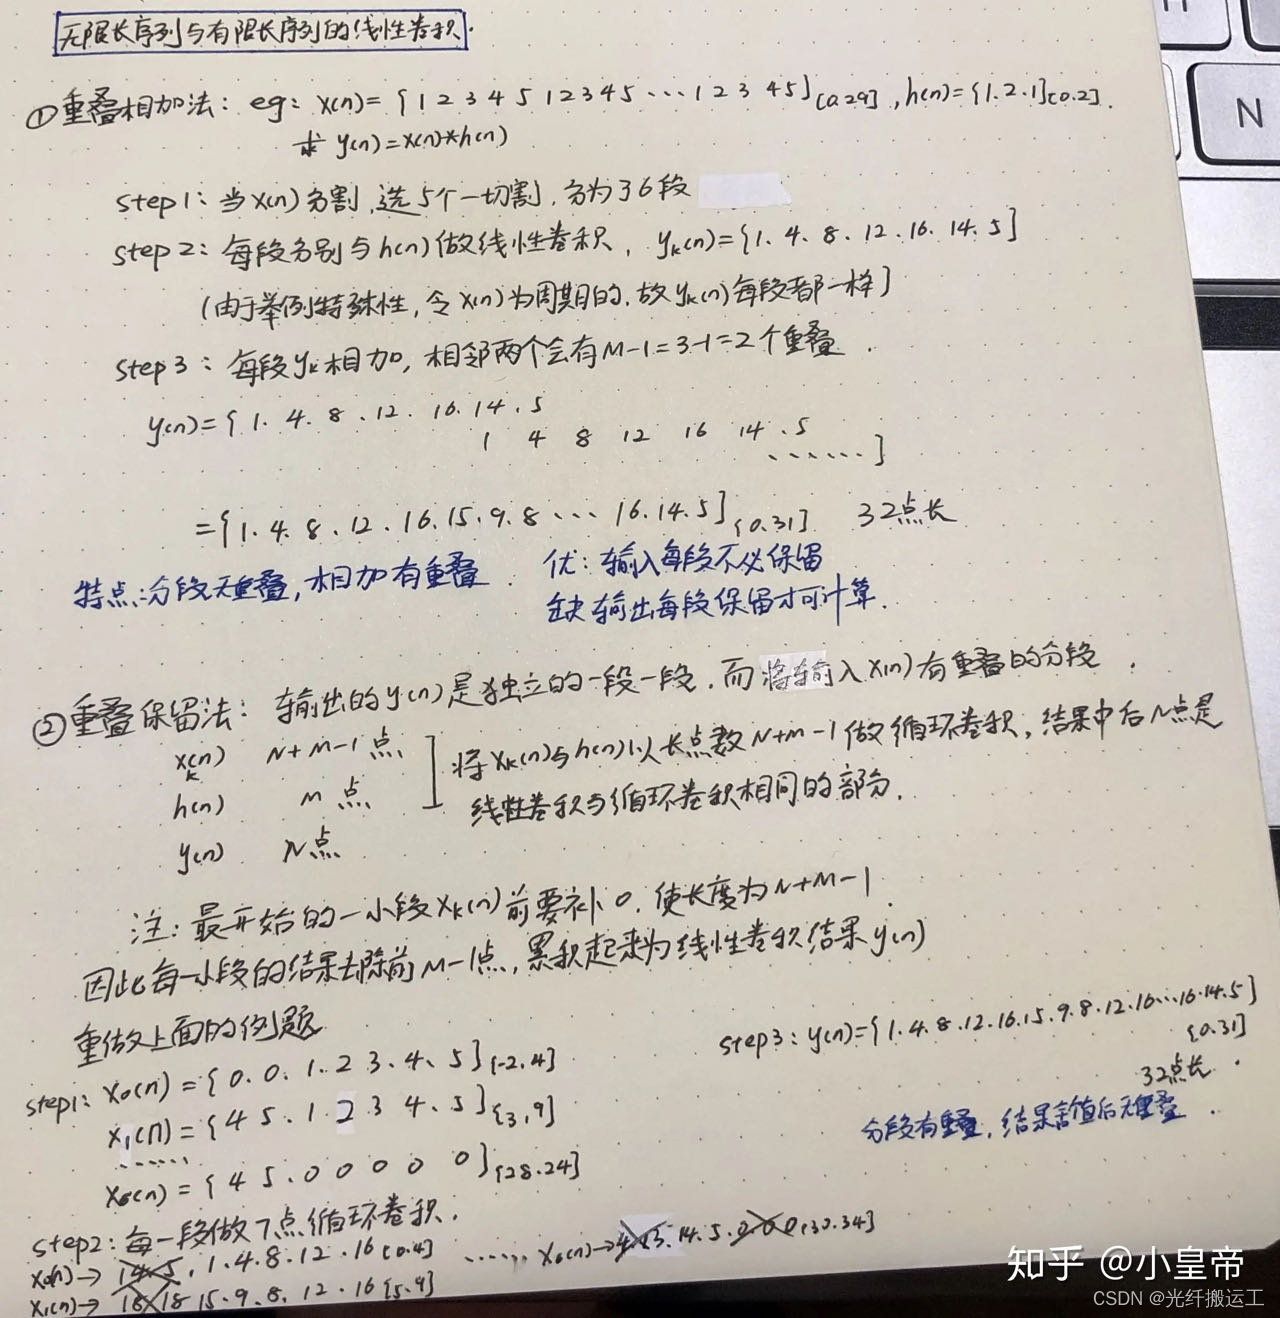 无限长序列与有限长序列的线性卷积.
①重叠相加法: eg: x(n)={1 2 3 4 5 1 2 3 4 5 ... 1 2 3 4 5}[0.29], h(n)={1.2.1}[0.2].
求 y(n)=x(n)*h(n)
step1: 当x(n)分割,选5个一切割,分为了6段
step2: 每段分别与h(n)做线性卷积, yk(n)={1. 4. 8. 12. 16. 14. 5}
(由于举例特殊性,令x(n)为周期的,故yk(n)每段都一样)
step3: 每段yk相加,相邻两个会有M-1=3-1=2个重叠.
y(n)={1. 4. 8. 12. 16. 14. 5
1 4 8 12 16 14 .5
......}
={1. 4. 8. 12. 16. 15. 9. 8 ... 16. 14. 5}[0.31] 32点长
特点:分段无重叠,相加有重叠. 优: 输入每段不必保留
缺 输出每段保留才可计算.
②重叠保留法: 输出的y(n)是独立的一段一段,而将输入x(n)有重叠的分段.
xk(n) N+M-1点
h(n) M点
y(n) N点
将xk(n)与h(n)以长点数N+M-1做循环卷积,结果中后N点是
线性卷积与循环卷积相同的部分.
注: 最开始的一小段xk(n)前要补0,使长度为N+M-1.
因此每一小段的结果去除前M-1点,累积起来为线性卷积结果y(n)
重做上面的例题
step1: x0(n)={0. 0. 1. 2 3. 4. 5}[-2.4]
x1(n)={4 5. 1 2 3 4. 5}[3,9]
......
x6(n)={4 5. 0 0 0 0 0}[28.24]
step2: 每一段做7点循环卷积.
x0(n)→ 14 5. 1. 4. 8. 12. 16 [0.4]
x1(n)→ 18 15. 9. 8. 12. 16 [5.9]
...... x6(n)→ 14. 5. 0 0 0 [30.34]
step3: y(n)={1. 4. 8. 12. 16. 15. 9. 8. 12. 16...16. 14. 5}
[0.31]
32点长.
分段有重叠,结果舍值后无重叠.
N
知乎 @小皇帝
CSDN @光纤搬运工